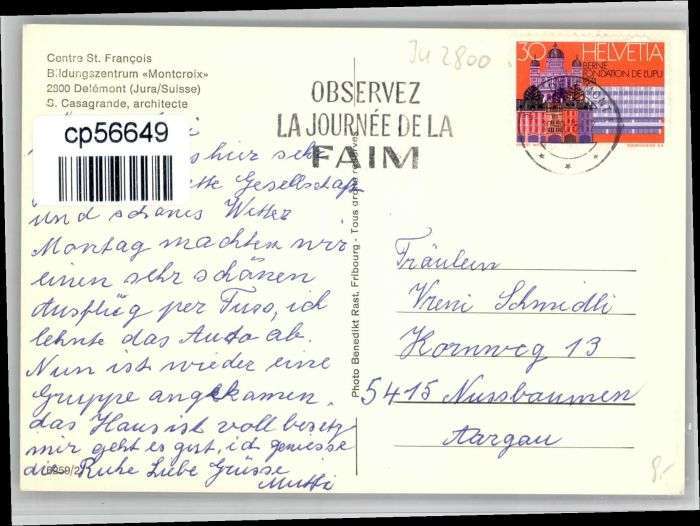 Centre St. François
Bildungszentrum «Montcroix»
2800 Delémont (Jura/Suisse)
S. Casagrande, architecte
cp56649
hier sehr
Gesellschaft
und schönes Wetter
Montag machten wir
einen sehr schönen
Ausflüg per Fuss, ich
lehnte das Auto ab.
Nun ist wieder eine
Gruppe angekommen.
das Haus ist voll besetzt
mir geht es gut, ich geniesse
die Ruhe Liebe Grüsse
Mutti
OBSERVEZ
LA JOURNÉE DE LA
FAIM
Ju 2800
30 HELVETIA
BERNE
FONDATION DE L'UPU
Photo Benedikt Rast, Fribourg - Tous droits réservés
Fräulein
Vreni Schmidli
Kornweg 13
5415 Nussbaumen
Aargau